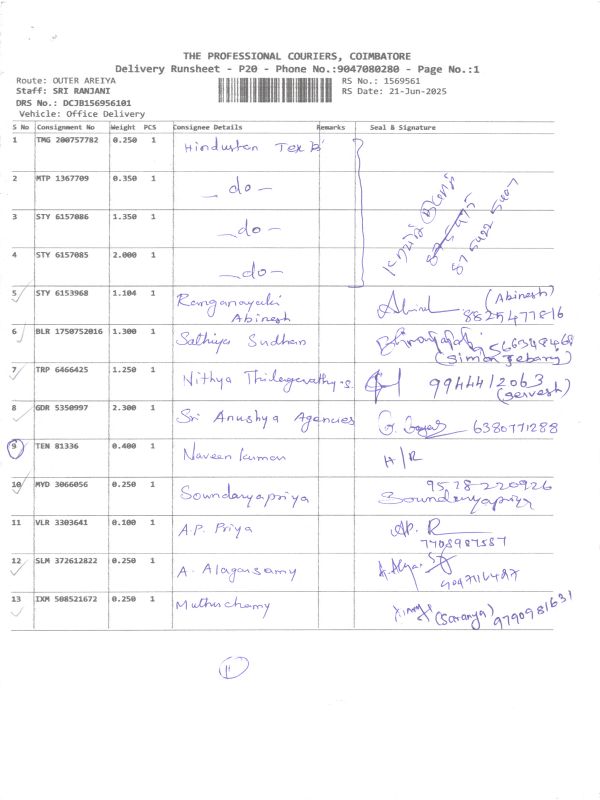 THE PROFESSIONAL COURIERS, COIMBATORE
Delivery Runsheet - P20 - Phone No.:9047080280 - Page No.:1
Route: OUTER AREIYA
RS No.: 1569561
Staff: SRI RANJANI
RS Date: 21-Jun-2025
DRS No.: DCJB156956101
Vehicle: Office Delivery
S No Consignment No Weight PCS Consignee Details Remarks Seal & Signature
1 TMG 200757782 0.250 1 Hindustan Tex
2 MTP 1367709 0.350 1 -do-
3 STY 6157086 1.350 1 -do-
4 STY 6157085 2.000 1 -do-
87 5422 5407
5 STY 6153968 1.104 1 Ranganayaki (Abinesh)
Abinesh 8825477816
6 BLR 1750752016 1.300 1 Sathiya Sudhan 9566348468
(Simon Jebaraj)
7 TRP 6466425 1.250 1 Nithya Thilegavathy.s. 9944412063
(Sarvesh)
8 GDR 5350997 2.300 1 Sri Anushya Agencies 6380771288
9 TEN 81336 0.400 1 Naveen kumar H/R
10 MYD 3066056 0.250 1 Soundaryapriya 9578220926
Soundaryapriya
11 VLR 3303641 0.100 1 A.P. Priya AP. R
7708987587
12 SLM 372612822 0.250 1 A. Alagarsamy
13 IXM 508521672 0.250 1 Muthuchamy (Saranya) 9790981631
11